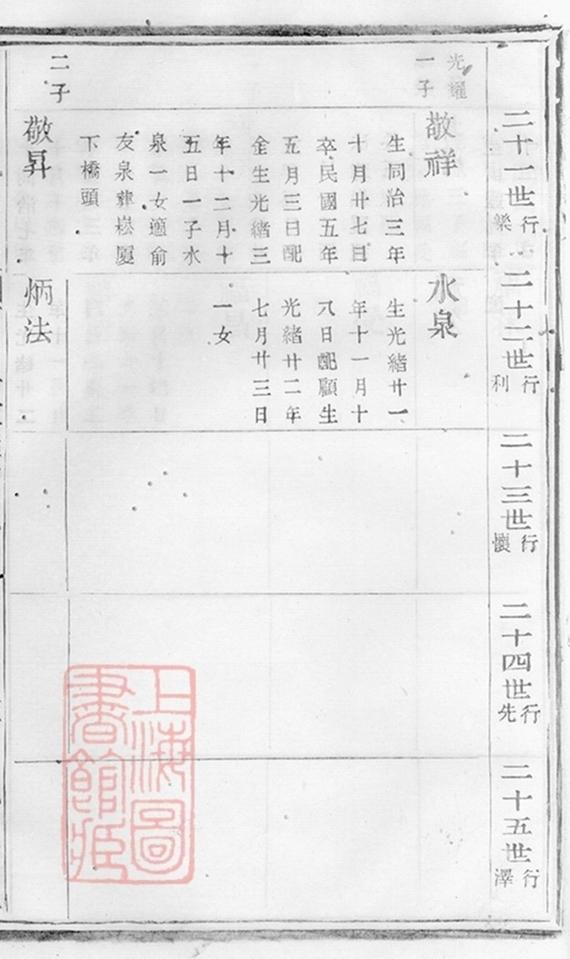 二十一世行樂
二十二世行利
二十三世行懷
二十四世行先
二十五世行澤
光耀
一子
敬祥
生同治三年
十月廿七日
卒民國五年
五月三日配
金生光緒三
年十二月十
五日一子水
泉一女適俞
友泉葬崧廈
下橋頭
水泉
生光緒廿一
年十一月十
八日配顧生
光緒廿二年
七月廿三日
一女
二子
敬昇
炳法
上海圖
書館藏